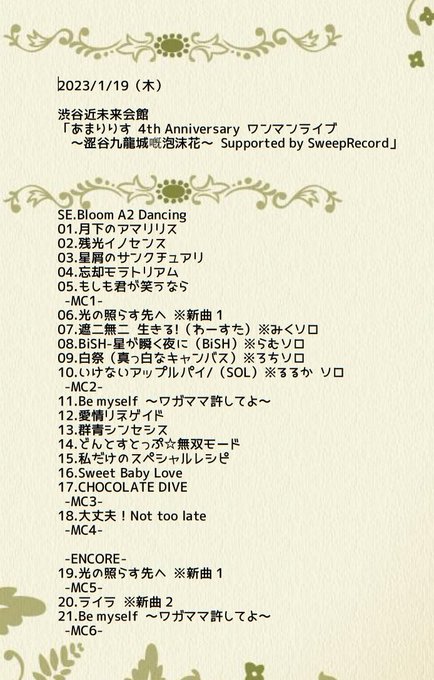 2023/1/19（木）
渋谷近未来会館
「あまりりす 4th Anniversary ワンマンライブ
～澀谷九龍城嘅泡沫花～ Supported by SweepRecord」
SE.Bloom A2 Dancing
01.月下のアマリリス
02.残光イノセンス
03.星屑のサンクチュアリ
04.忘却モラトリアム
05.もしも君が笑うなら
-MC1-
06.光の照らす先へ ※新曲1
07.遮二無二 生きる!（わーすた）※みくソロ
08.BiSH-星が瞬く夜に（BiSH）※らむソロ
09.白祭（真っ白なキャンバス）※ろちソロ
10.いけないアップルパイ/（SOL）※るるか ソロ
-MC2-
11.Be myself ～ワガママ許してよ～
12.愛情リネゲイド
13.群青シンセシス
14.どんとすとっぷ☆無双モード
15.私だけのスペシャルレシピ
16.Sweet Baby Love
17.CHOCOLATE DIVE
-MC3-
18.大丈夫！Not too late
-MC4-
-ENCORE-
19.光の照らす先へ ※新曲1
-MC5-
20.ライラ ※新曲2
21.Be myself ～ワガママ許してよ～
-MC6-